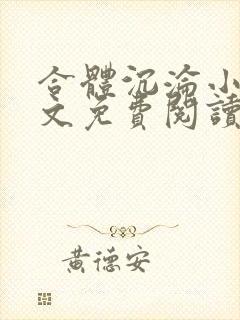 合體沉淪小
文免費閱讀
黃德安